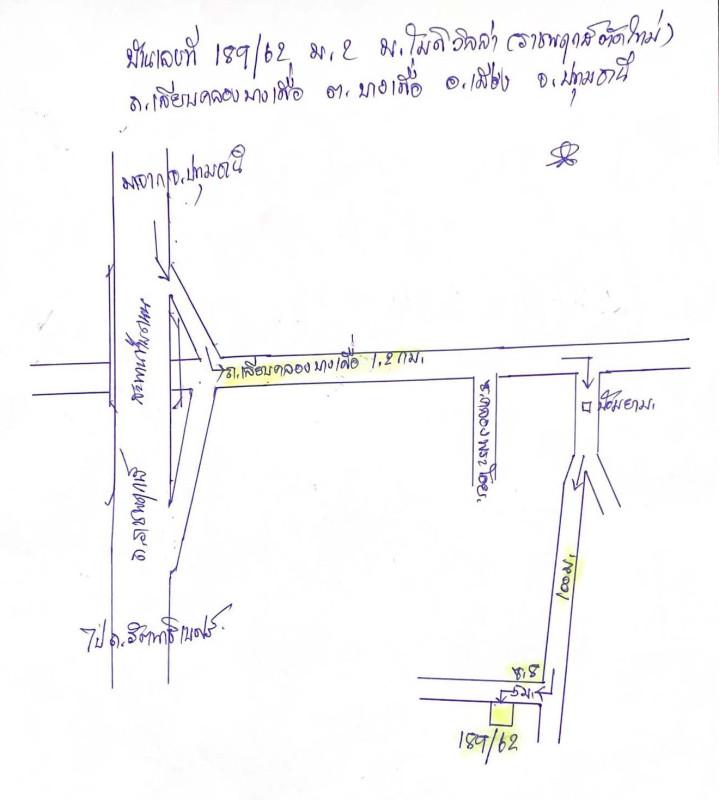 บ้านเลขที่ 189/62 ม.2 ม.โมดิวิลล่า (ราชพฤกษ์ตัดใหม่)
ถ.เลียบคลองบางเดื่อ ต.บางเดื่อ อ.เมือง จ.ปทุมธานี
มาจาก จ.ปทุมธานี
สะพานข้าม
ถ.เลียบคลองบางเดื่อ 1.2 กม.
ป้อมยาม.
ซ.คลองพระอุดม
ถ.ราชพฤกษ์
100 ม.
ไป ถ.รัตนาธิเบศร์
ซ.8
5ม.
189/62